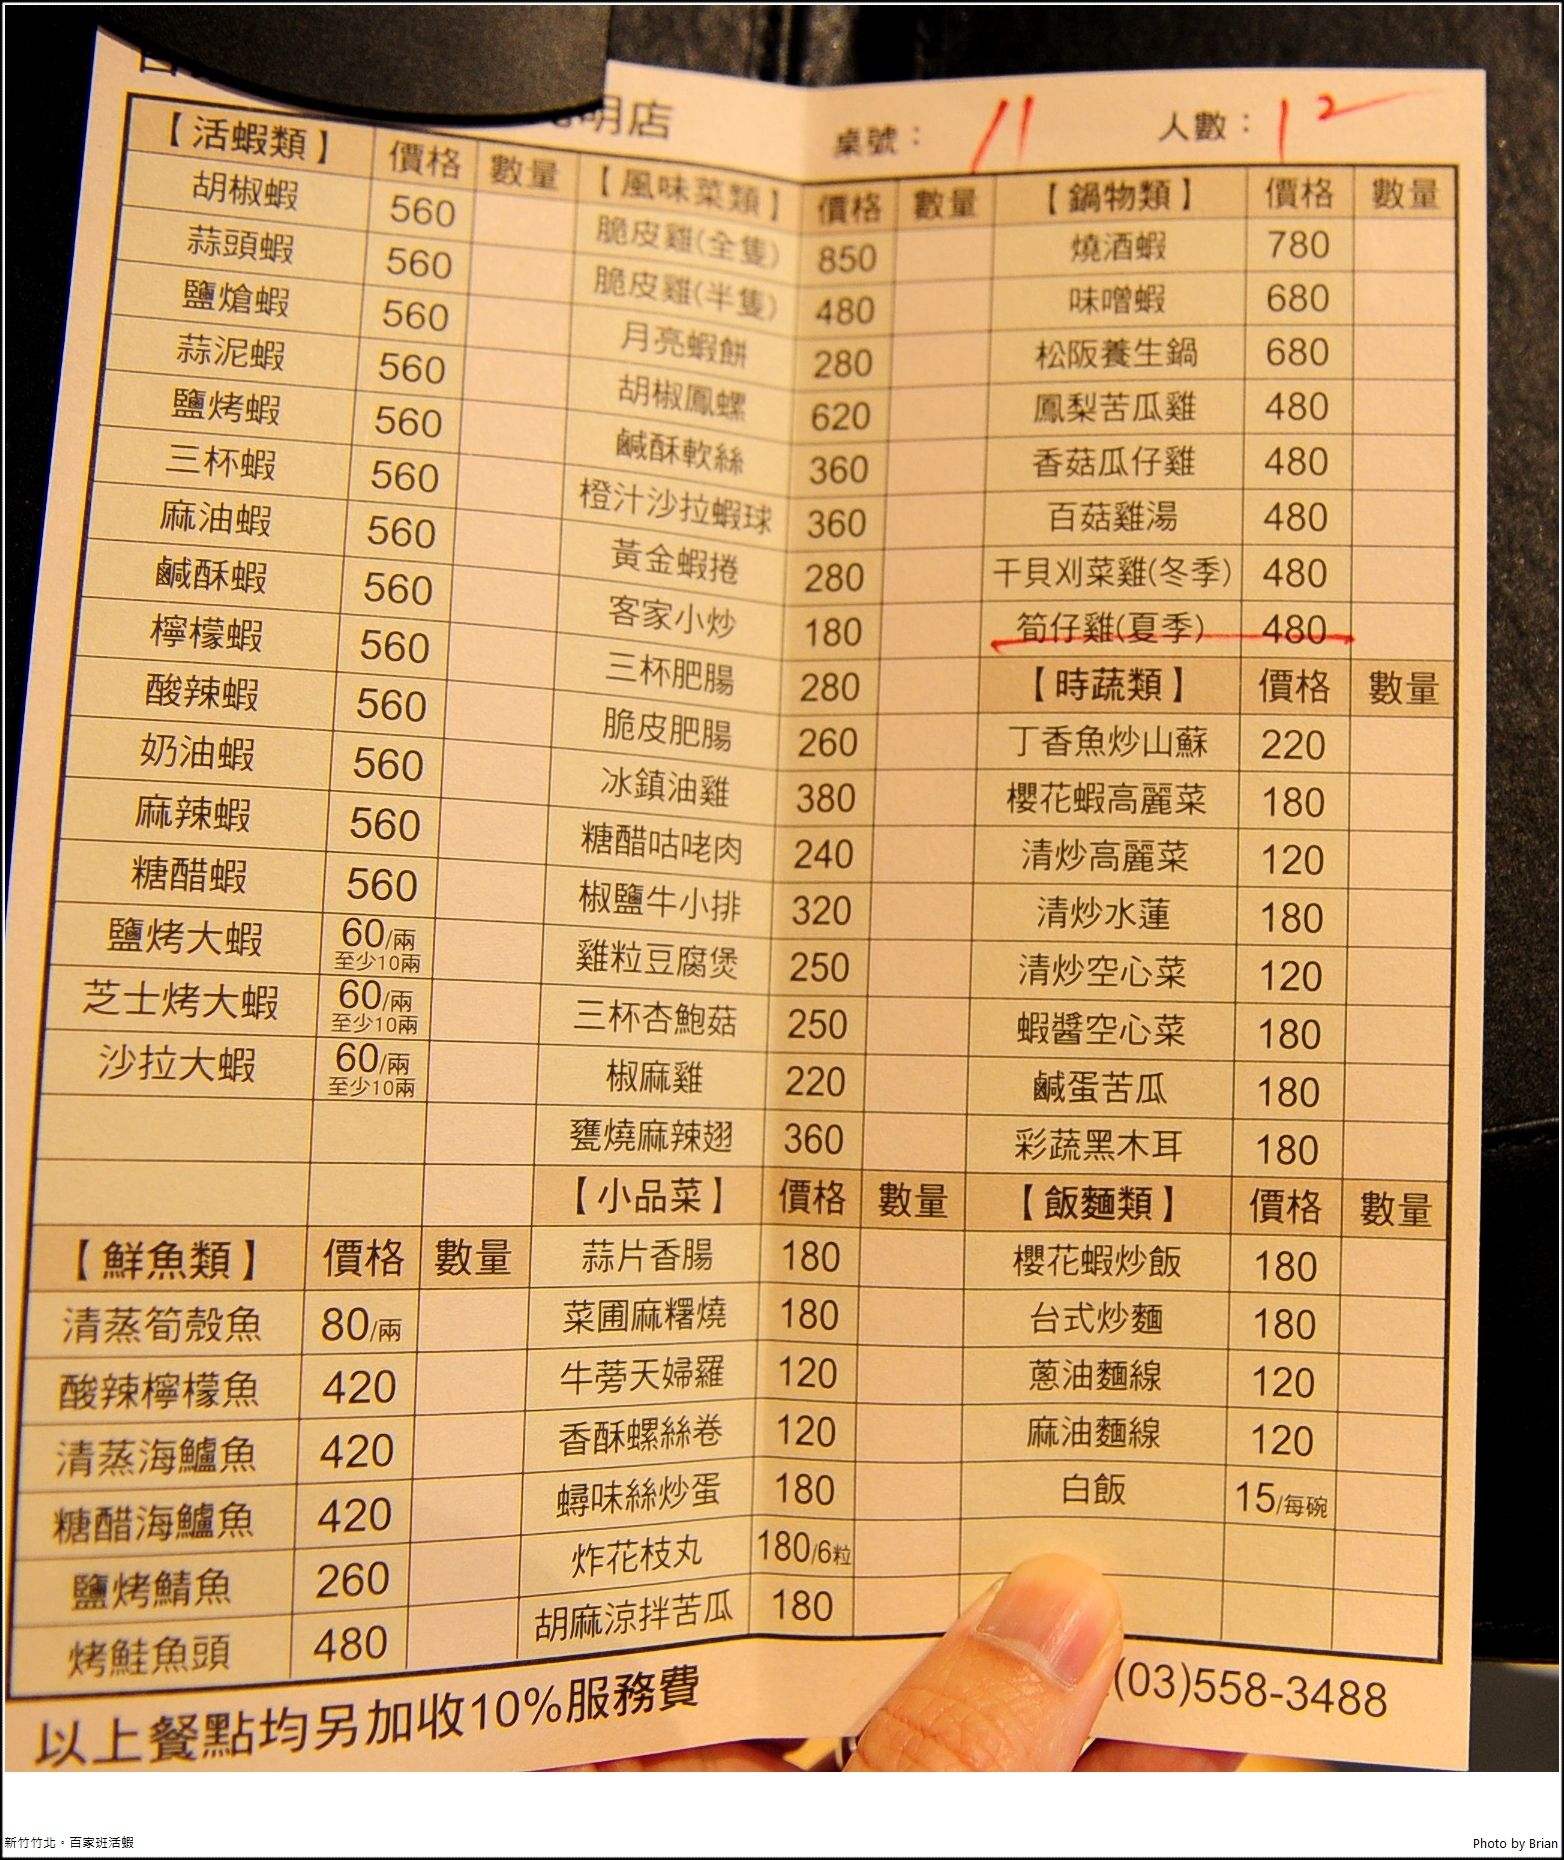 明店
桌號： 11 人數：12
【活蝦類】 價格 數量
胡椒蝦 560
蒜頭蝦 560
鹽熗蝦 560
蒜泥蝦 560
鹽烤蝦 560
三杯蝦 560
麻油蝦 560
鹹酥蝦 560
檸檬蝦 560
酸辣蝦 560
奶油蝦 560
麻辣蝦 560
糖醋蝦 560
鹽烤大蝦 60/兩 至少10兩
芝士烤大蝦 60/兩 至少10兩
沙拉大蝦 60/兩 至少10兩
【鮮魚類】 價格 數量
清蒸筍殼魚 80/兩
酸辣檸檬魚 420
清蒸海鱸魚 420
糖醋海鱸魚 420
鹽烤鯖魚 260
烤鮭魚頭 480
【風味菜類】 價格 數量
脆皮雞(全隻) 850
脆皮雞(半隻) 480
月亮蝦餅 280
胡椒鳳螺 620
鹹酥軟絲 360
橙汁沙拉蝦球 360
黃金蝦捲 280
客家小炒 180
三杯肥腸 280
脆皮肥腸 260
冰鎮油雞 380
糖醋咕咾肉 240
椒鹽牛小排 320
雞粒豆腐煲 250
三杯杏鮑菇 250
椒麻雞 220
甕燒麻辣翅 360
【小品菜】 價格 數量
蒜片香腸 180
菜圃麻糬燒 180
牛蒡天婦羅 120
香酥螺絲卷 120
蟳味絲炒蛋 180
炸花枝丸 180/6粒
胡麻涼拌苦瓜 180
【鍋物類】 價格 數量
燒酒蝦 780
味噌蝦 680
松阪養生鍋 680
鳳梨苦瓜雞 480
香菇瓜仔雞 480
百菇雞湯 480
干貝刈菜雞(冬季) 480
筍仔雞(夏季) 480
【時蔬類】 價格 數量
丁香魚炒山蘇 220
櫻花蝦高麗菜 180
清炒高麗菜 120
清炒水蓮 180
清炒空心菜 120
蝦醬空心菜 180
鹹蛋苦瓜 180
彩蔬黑木耳 180
【飯麵類】 價格 數量
櫻花蝦炒飯 180
台式炒麵 180
蔥油麵線 120
麻油麵線 120
白飯 15/每碗
以上餐點均另加收10%服務費
(03)558-3488
新竹竹北。百家班活蝦
Photo by Brian